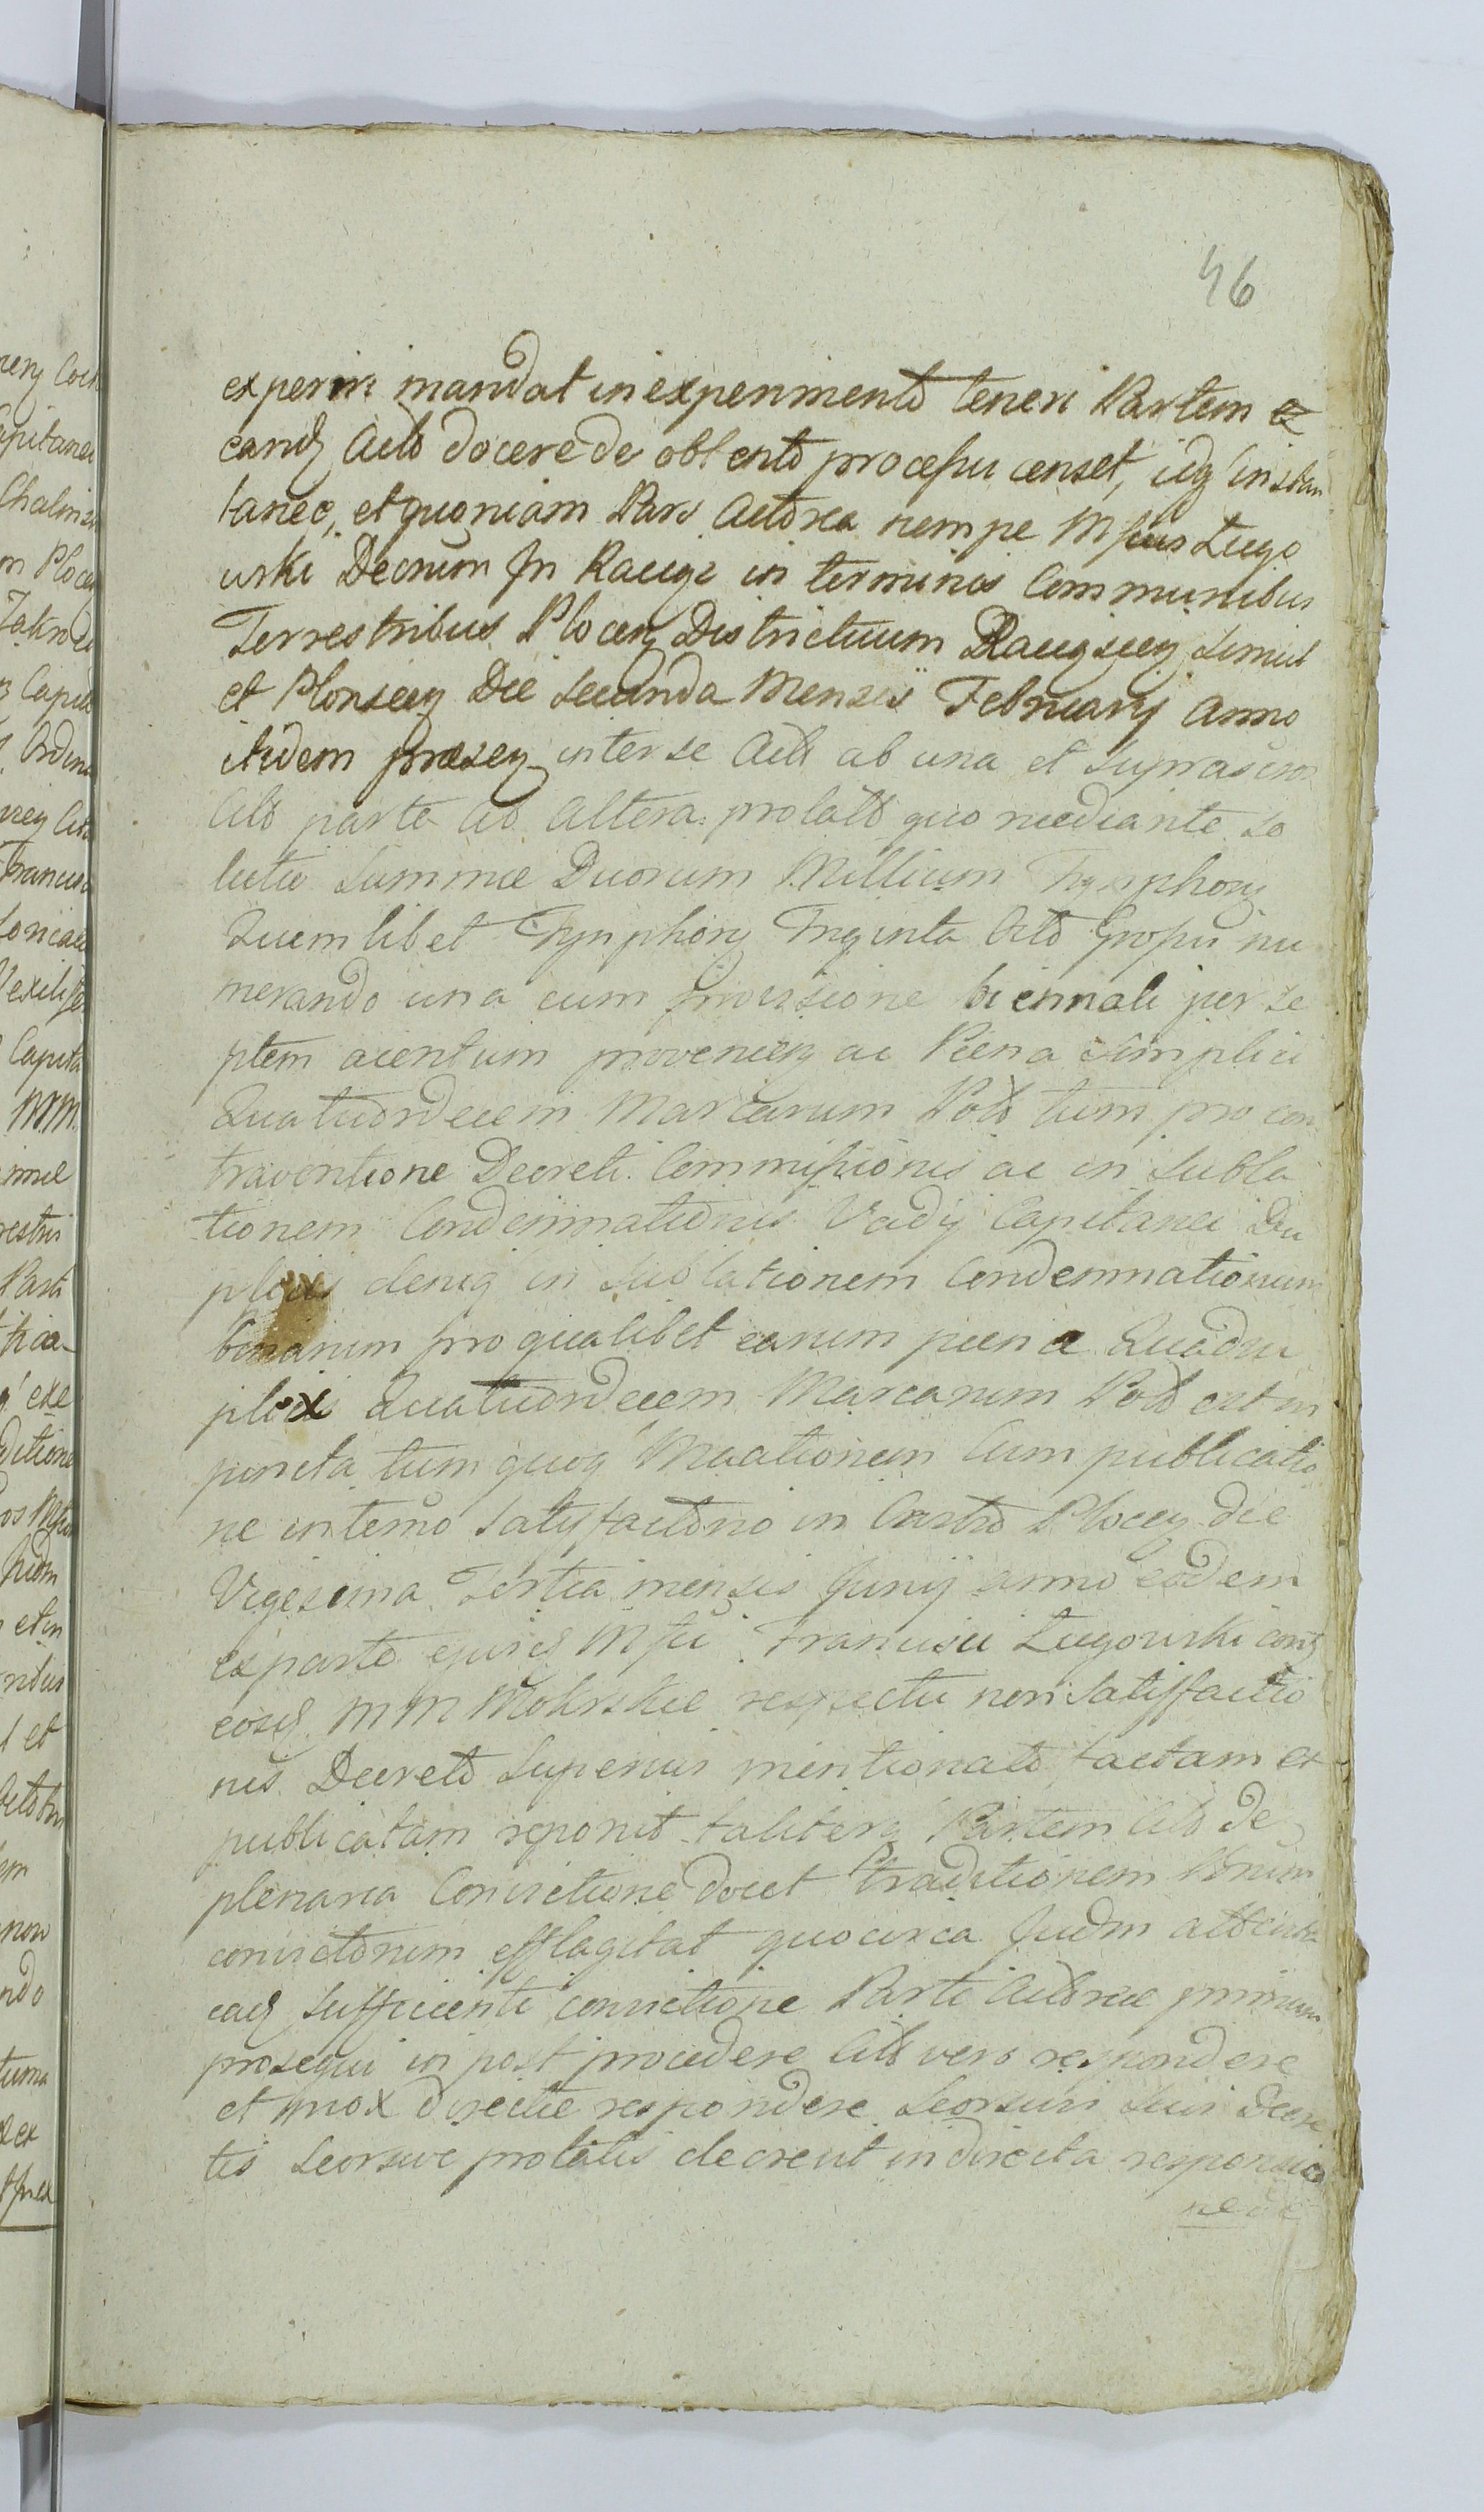 46
experiri mandat in experimento teneri Partem ex
eand Acto docere de obtento processu censet, idq instan
tanee, et quoniam Pars Actorea nempe Mfcus Lugo
wski Decrum In Raciąż in terminis Communibus
Terrestribus Plocen Districtuum Raciązien simul
et Plonscen Die secunda Mensis February Anno
itidem praesen inter se Acto ab una et suprascros
Ctto parte ab altera prolato quo mediante so
lutio Summae Duorum Millium Tynphon
Quemlibet Tynphon Triginta Octo Grossis nu
merando una cum provisione biennali per se
ptem a centum provenien ac Poena simplici
Quatuordecem Marcarum Pol tum pro con
traventione Decreti Commissionis ac in subla
tionem Condemnationis Vadij Capitanei Du
plicis deniq in sublationem Condemnationum
binarum pro qualibet earum poena Quadru
plicis Quatuordecem Marcarum Pol est in
juncta tum quoq cum publicatio
ne in termo satisfactorio in Castro Plocen die
Vigesima Tertia mensis Junij anno eodem
ex parte ejusd Mfci Francisci Lugowski con
eosd MM Mokrskie respectu non satisfactio
nis Decreto superius mentionato factam et
publicatam reponit taliter Partem Ctt de
plenaria Convictione docet traditionem Bnrum
convictorum efflagitat quocirca Judm
ead sufficienti convictione Parti Actoreae primum
prosequi in post procedere Ctt vero respondere
et mox directe respondere seorsivis suis Decre
tis seorsive prolatis decrevit in directa responsio
ne de